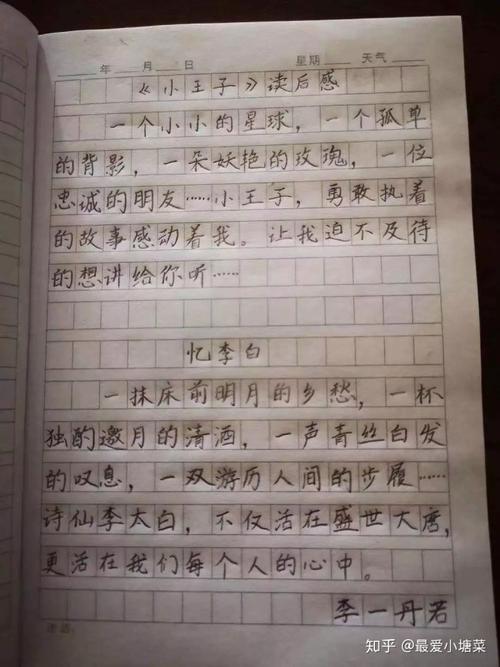 年 月 日 星期 天气
《小王子》读后感
一个小小的星球，一个孤单
的背影，一朵妖艳的玫瑰，一位
忠诚的朋友……小王子，勇敢执着
的故事感动着我。让我迫不及待
的想讲给你听……
忆李白
一抹床前明月的乡愁，一杯
独酌邀月的清酒，一声青丝白发
的叹息，一双游历人间的步履……
诗仙李太白，不仅活在盛世大唐，
更活在我们每个人的心中。
李一丹若
知乎 @最爱小塘菜